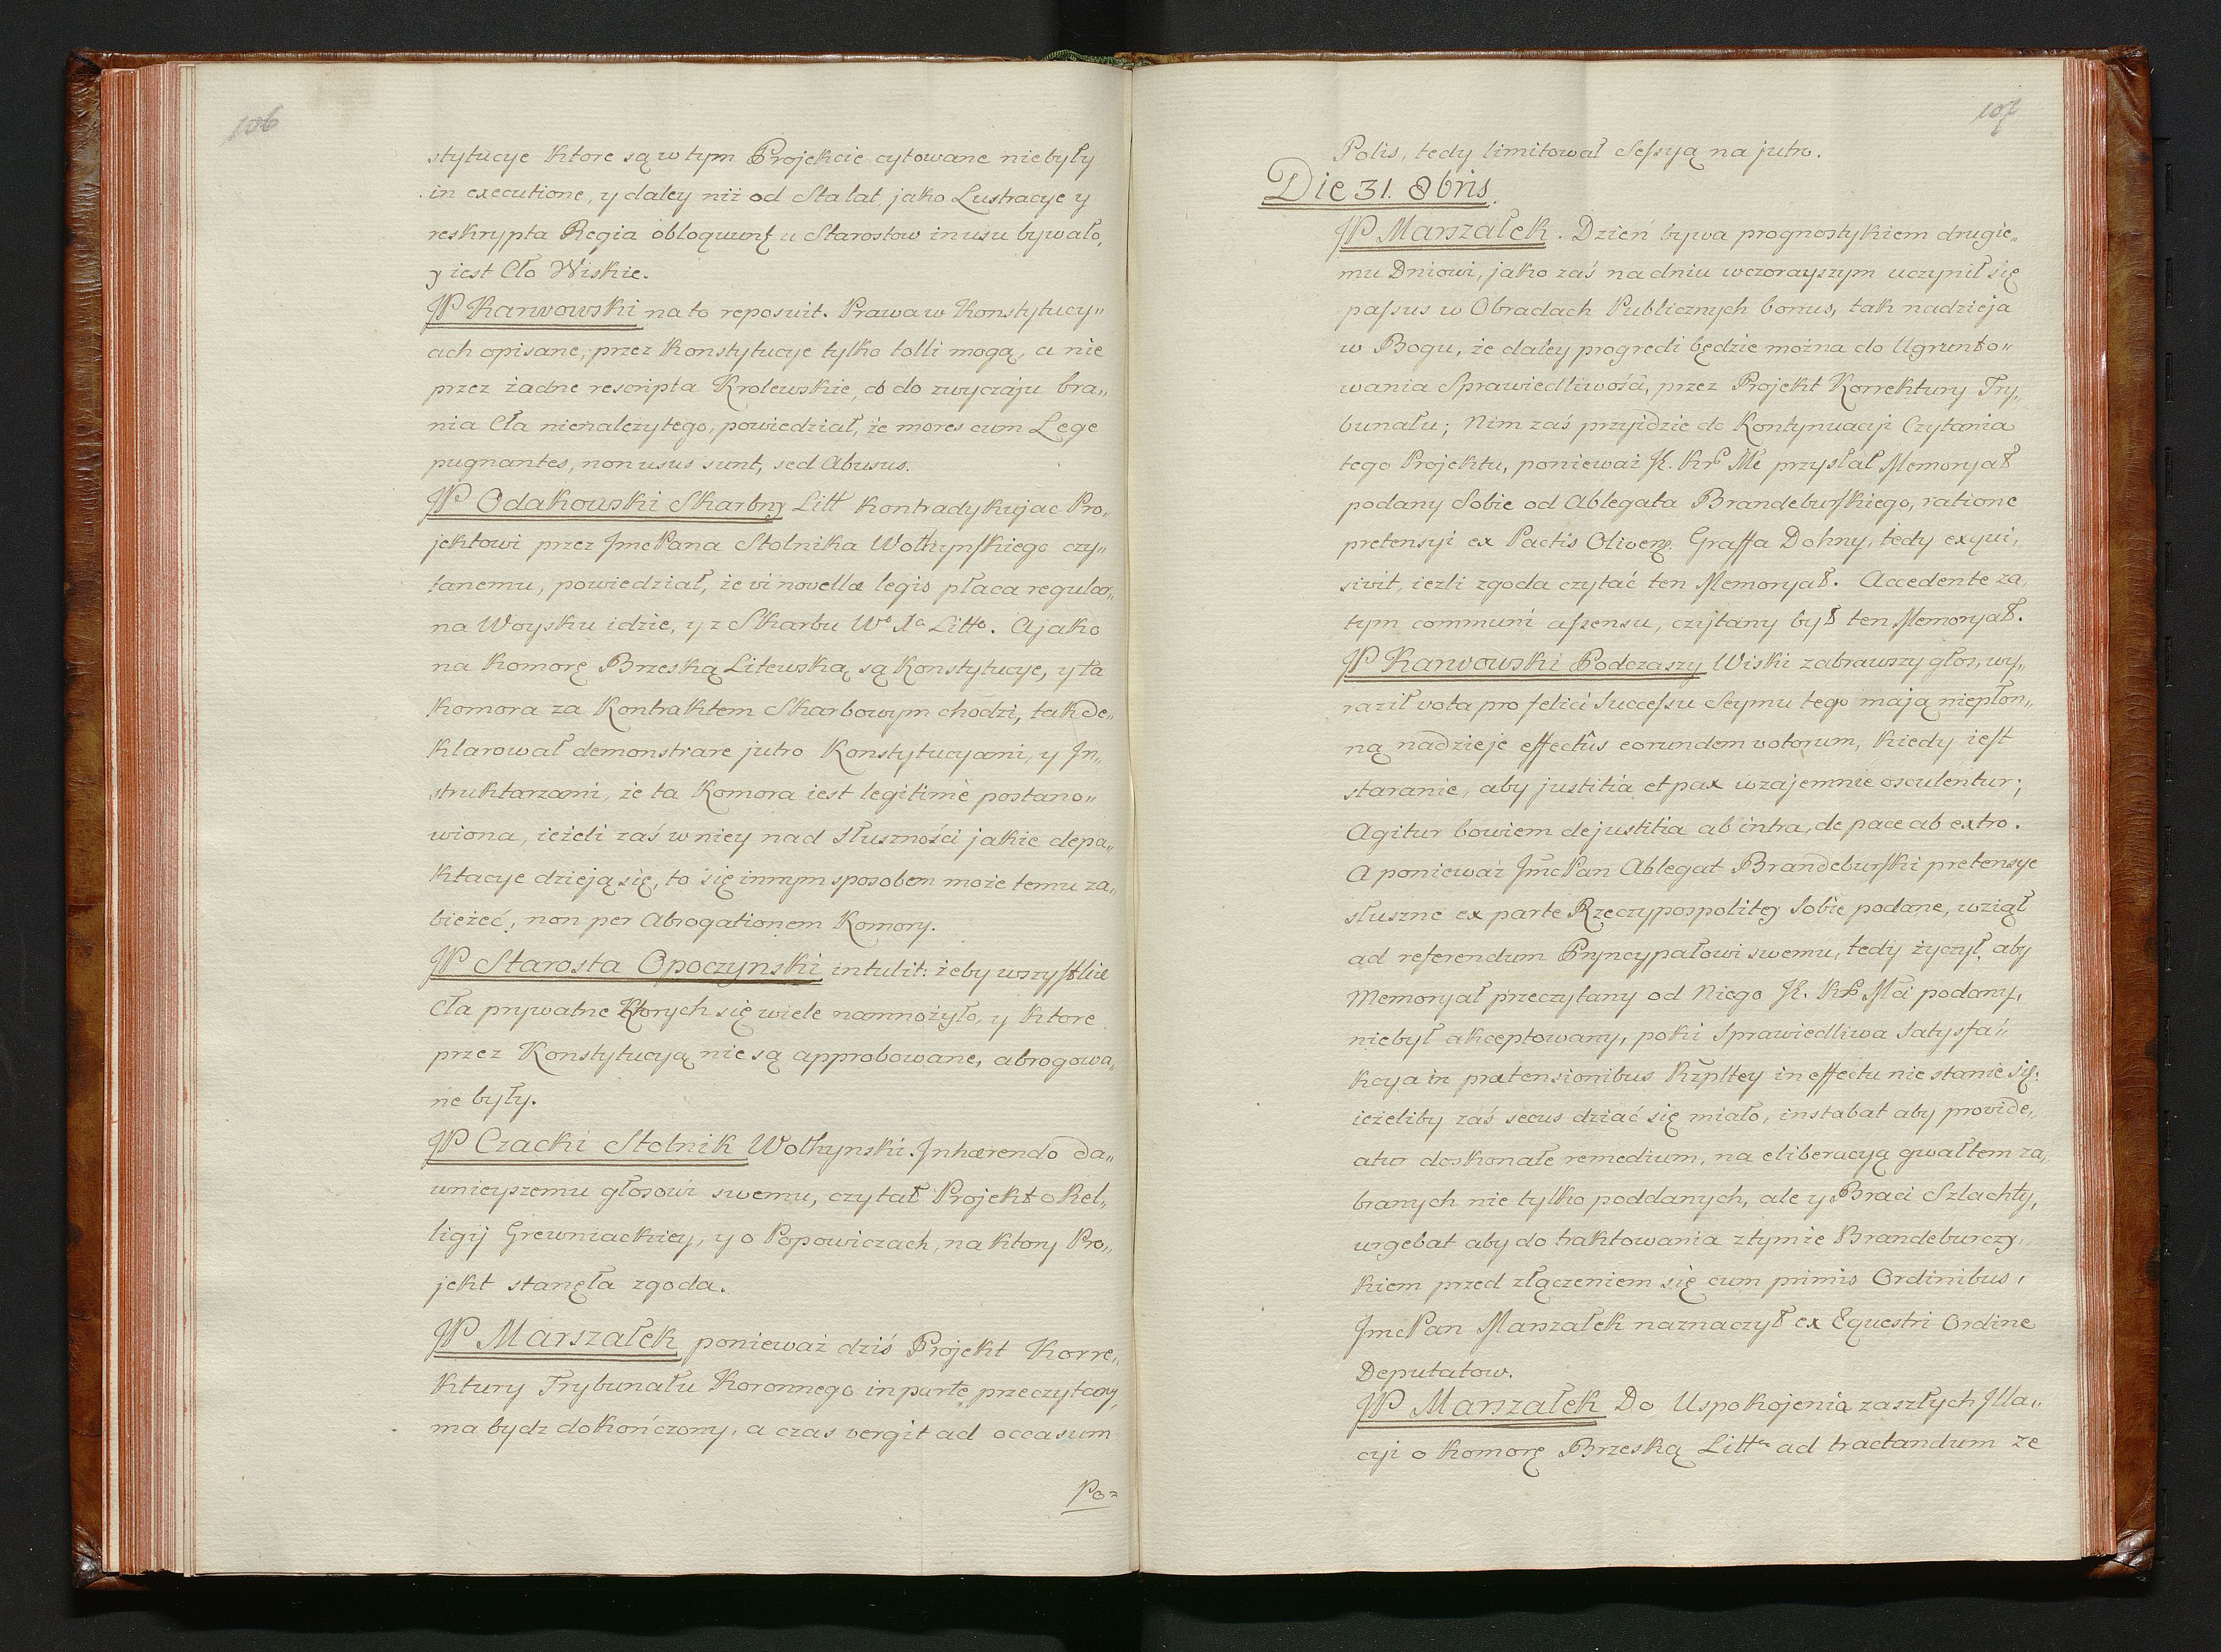 106
stytucye ktore są w tym Projekcie cytowane niebyły
in executione, y daley niż od Sta lat, jako Lustracye y
reskrypta Regia obloquunt u Starostow in usu bywało,
y iest Cło Wiskie.
JP Karwowski na to reposuit. Prawa w Konstytucy„
ach opisane, przez Konstytucye tylko tolli mogą, a nie
przez żadne rescripta Krolewskie, do zwyczáju bra„
nia Cła nienależytego, powiedział, że mores cum Lege
pugnantes, non usus sunt, sed Abusus.
JP Odakowski Skarbny Litt kontradykujac Pro„
jektowi przez JmcPana Stolnika Wołhynskiego czy„
tanemu, powiedział, że vi novellæ legis płaca regular„
na Woysku idzie, y z Skarbu Litto. A jako
na Komorę Brzeską Litewską są Konstytucye, y ta
Komora za Kontraktem Skarbowym chodzi, tak de„
klarował demonstrare jutro Konstytucyami, y In„
struktarzami, że ta Komora iest legitimè postano„
wiona, ieżeli zaś w niey nad słuszności jakie depa„
ktacye dzieją się, to się innym sposobem może temu za„
bieżeć, non per Abrogationem Komory.
JP Starosta Opoczynski intulit: żeby wszystkie
Cła prywatne ktorych się wiele namnożyło, y ktore
przez Konstytucyą nie są approbowane, abrogowa„
ne były.
JP Czacki Stolnik Wołhynski. Inhærendo da„
wnieyszemu głosowi swemu, czytał Projekt o Rel„
ligij Grewniackiey, y o Popowiczach, na ktory Pro„
jekt stanęła zgoda.
JP Marszałek ponieważ dziś Projekt Korre„
ktury Trybunału Koronnego in parte przeczytany,
ma bydz dokończony, a czas vergit ad occasum
Po=
107
Polis, tedy limitował Sessyą na jutro.
Die 31. 8bris.
JP Marszałek. Dzień bywa prognostykiem drugie„
mu Dniowi, jako zaś na dniu wczorayszym uczynił się
passus w Obradach Publicznych bonus, tak nadzieja
w Bogu, że daley progredi będzie można do Ugrunto„
wania Sprawiedliwości, przez Projekt Korrektury Try„
bunału; Nim zaś przyidzie do Kontynuacyi Czytania
tego Projektu, ponieważ przysłał Memoryał
podany Sobie od Ablegata Brandeburskiego, ratione
pretensyi ex Pactis Graffa Dohny, tedy exqui„
sivit, iezli zgoda czytać ten Memoryał. Accedente za„
tym communi assensu, czytany był ten Memoryał.
JP Karwowski Podczaszy Wiski zabrawszy głos, wy„
raził vota pro felici Successu Seymu tego mają niepłon„
ną nadzieje effectûs eorundem votorum, kiedy iest
staranie, aby justitia et pax wzajemnie osculentur;
Agitur bowiem de justitia ab intra, de pace ab extro.
A ponieważ JmcPan Ablegat Brandeburski pretensye
słuszne ex parte Rzeczypospolitey Sobie podane, wziął
ad referendum Pryncypałowi swemu, tedy życzył, aby
Memoryał przeczytany od Niego podany,
niebył akceptowany, poki Sprawiedliwa Satysfa„
kcya in prætensionibus Rzpltey in effectu nie stanie się:
ieżeliby zaś secus dziać się miało, instabat aby provide„
atur doskonałe remedium, na eliberacyą gwałtem za„
branych nie tylko poddanych, ale y Braci Szlachty,
urgebat aby do traktowania z tymże Brandeburczy„
kiem przed złączeniem się cum primis Ordinibus,
JmcPan Marszałek naznaczył ex Equestri Ordine
Deputatow.
JP Marszałek Do Uspokojenia zaszłych Illa„
cyi o Komorę Brzeską ad tractandum ze